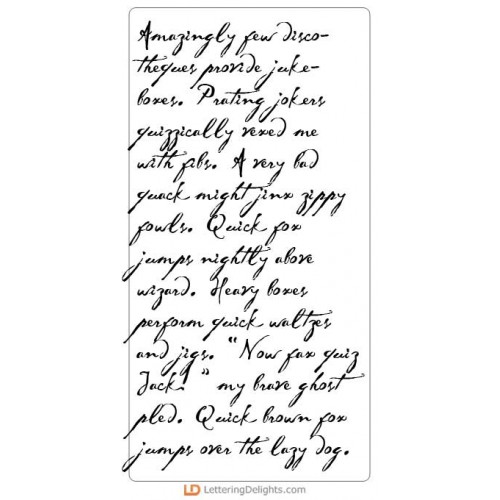 Amazingly few disco-
theques provide juke-
boxes. Prating jokers
quizzically vexed me
with fibs. A very bad
quack might jinx zippy
fowls. Quick fox
jumps nightly above
wizard. Heavy boxes
perform quick waltzes
and jigs. "Now fax quiz
Jack! " my brave ghost
pled. Quick brown fox
jumps over the lazy dog.
LD LetteringDelights.com